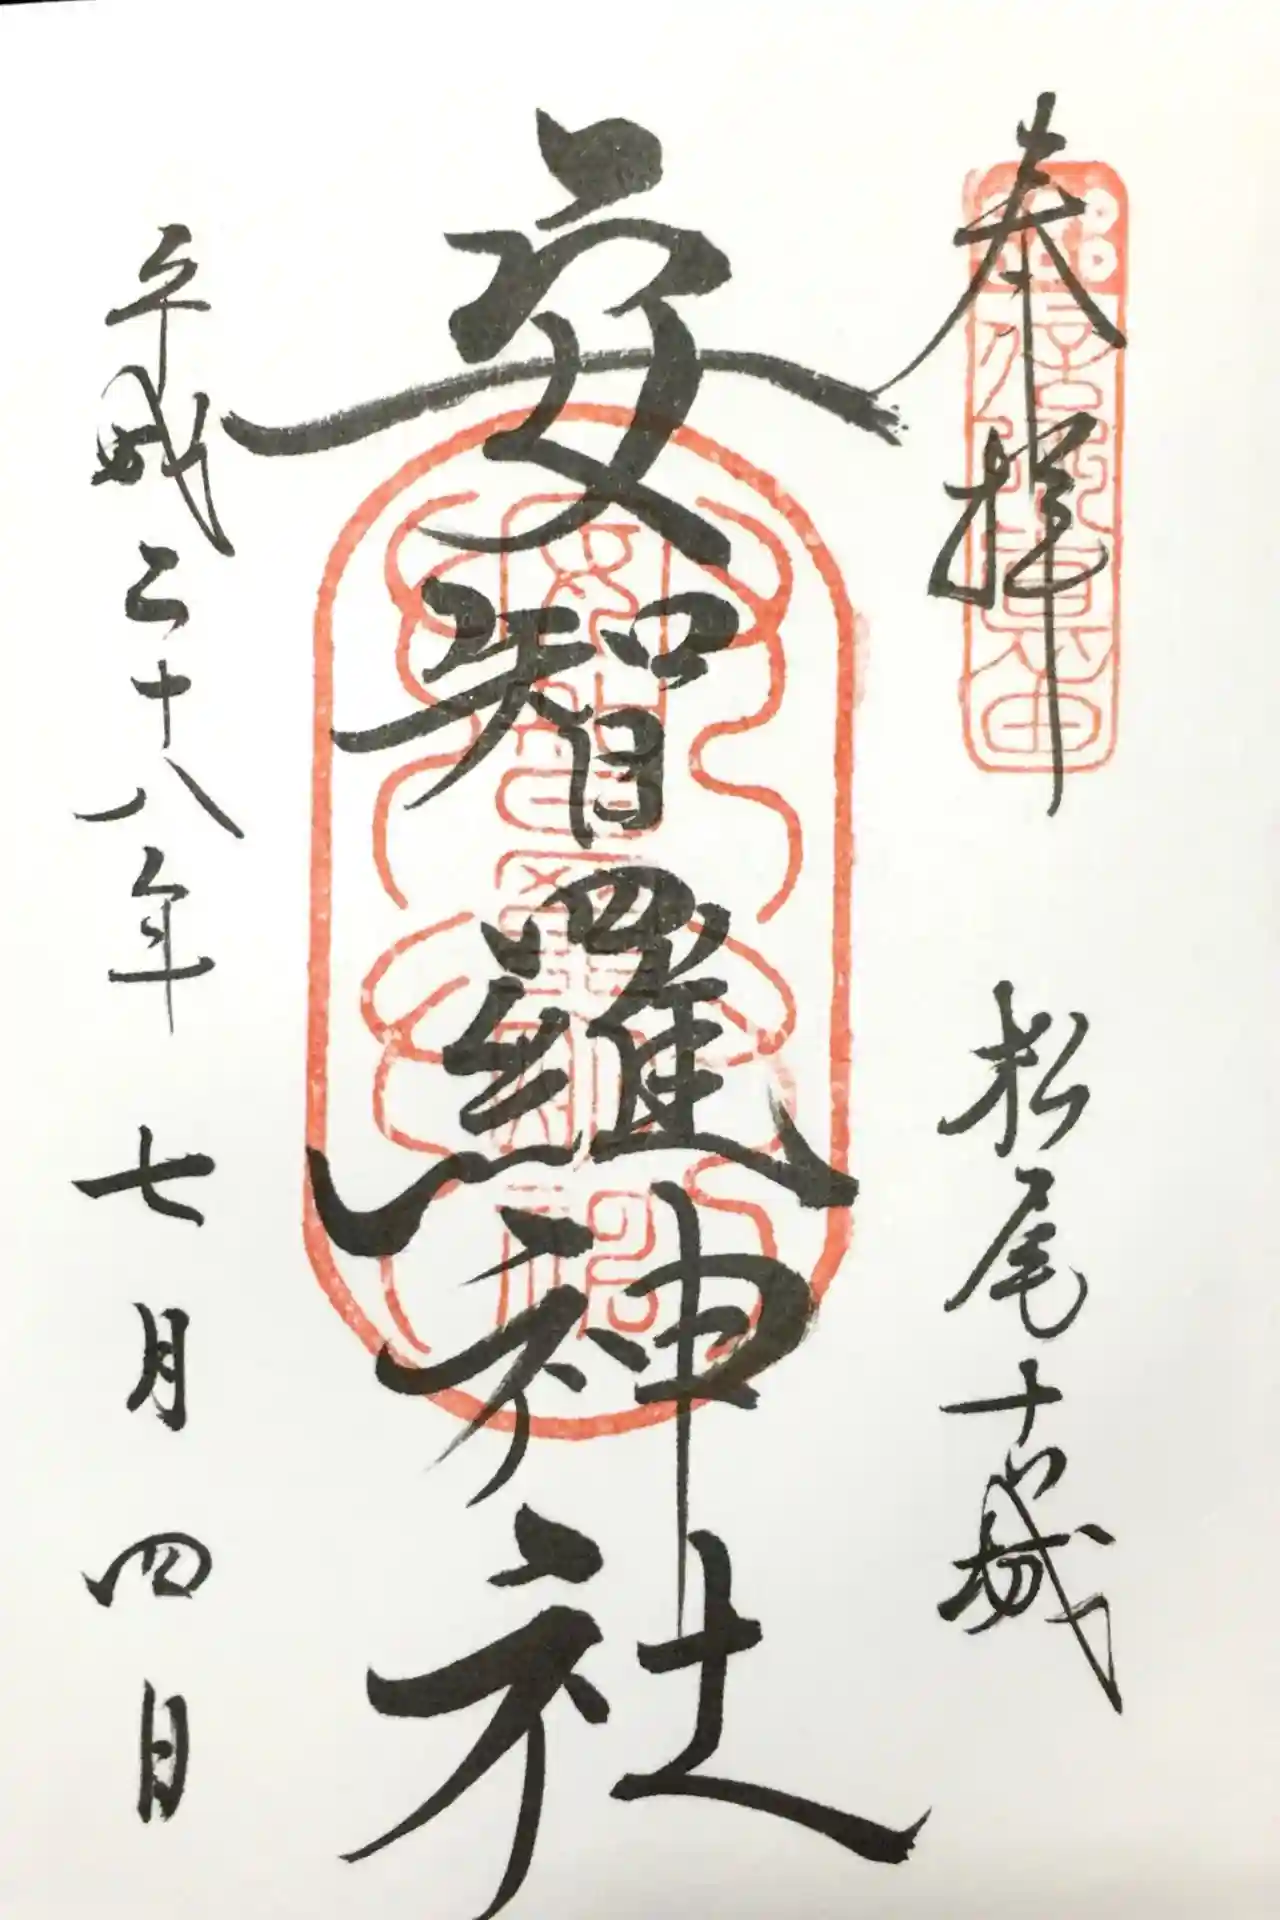 奉拝 松尾古城
安智羅神社
平成二十八年 七月 四日